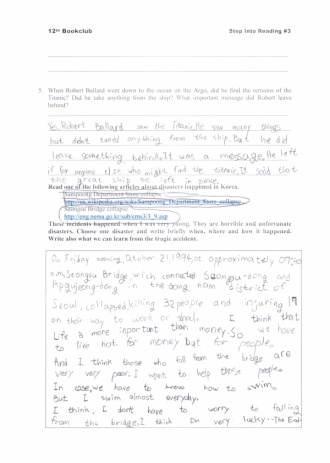 12th Bookclub
Step Into Reading #3
5. When Robert Ballard went down to the ocean on the Argo, did he find the remains of the
Titanic? Did he take anything from the ship? What important message did Robert leave
behind?
Yes, Robert Ballard saw the Titanic. He saw many things
but didn't take anything from the ship. But he did
leave something behind. It was a message. He left
it for anyone else who might find the titanic. It said that
the great ship be left in peace.
Read one of the following articles about disasters happened in Korea.
Sampoong Department Store collapse
http://en.wikipedia.org/wiki/Sampoong_Department_Store_collapse
Seongsu Bridge collapse
http://eng.nema.go.kr/sub/cms3/3_9.asp
These incidents happened when I was very young. They are horrible and unfortunate
disasters. Choose one disaster and write briefly when, where and how it happened.
Write also what we can learn from the tragic accident.
On Friday morning, October 21, 1994, at approximately 07:40
a.m, Seongsu Bridge, which connected Seongsu-dong and
Apgujeong-dong in the district of
Seoul, collapsed, killing 32 people and injuring 17
on their way to work or school. I think that
Life is more important than money. So we have
to live not for money but for people.
And I think those who fall from the bridge are
very very poor. I want to help those people.
In case, we have to know how to swim.
But I swim almost everyday.
I think, I don't have to worry to falling
from the bridge. I think I'm very lucky. The End